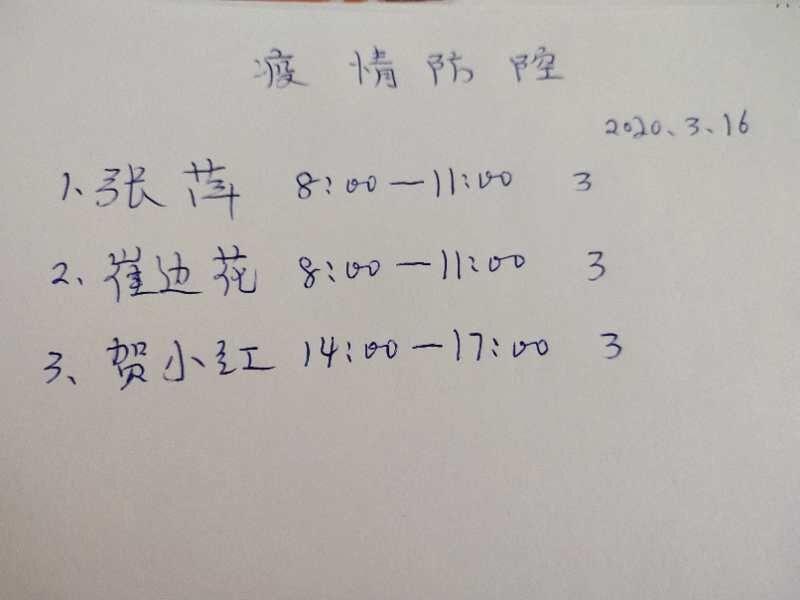 疫情防控
2020.3.16
1、张萍 8:00—11:00 3
2、崔边花 8:00—11:00 3
3、贺小红 14:00—17:00 3